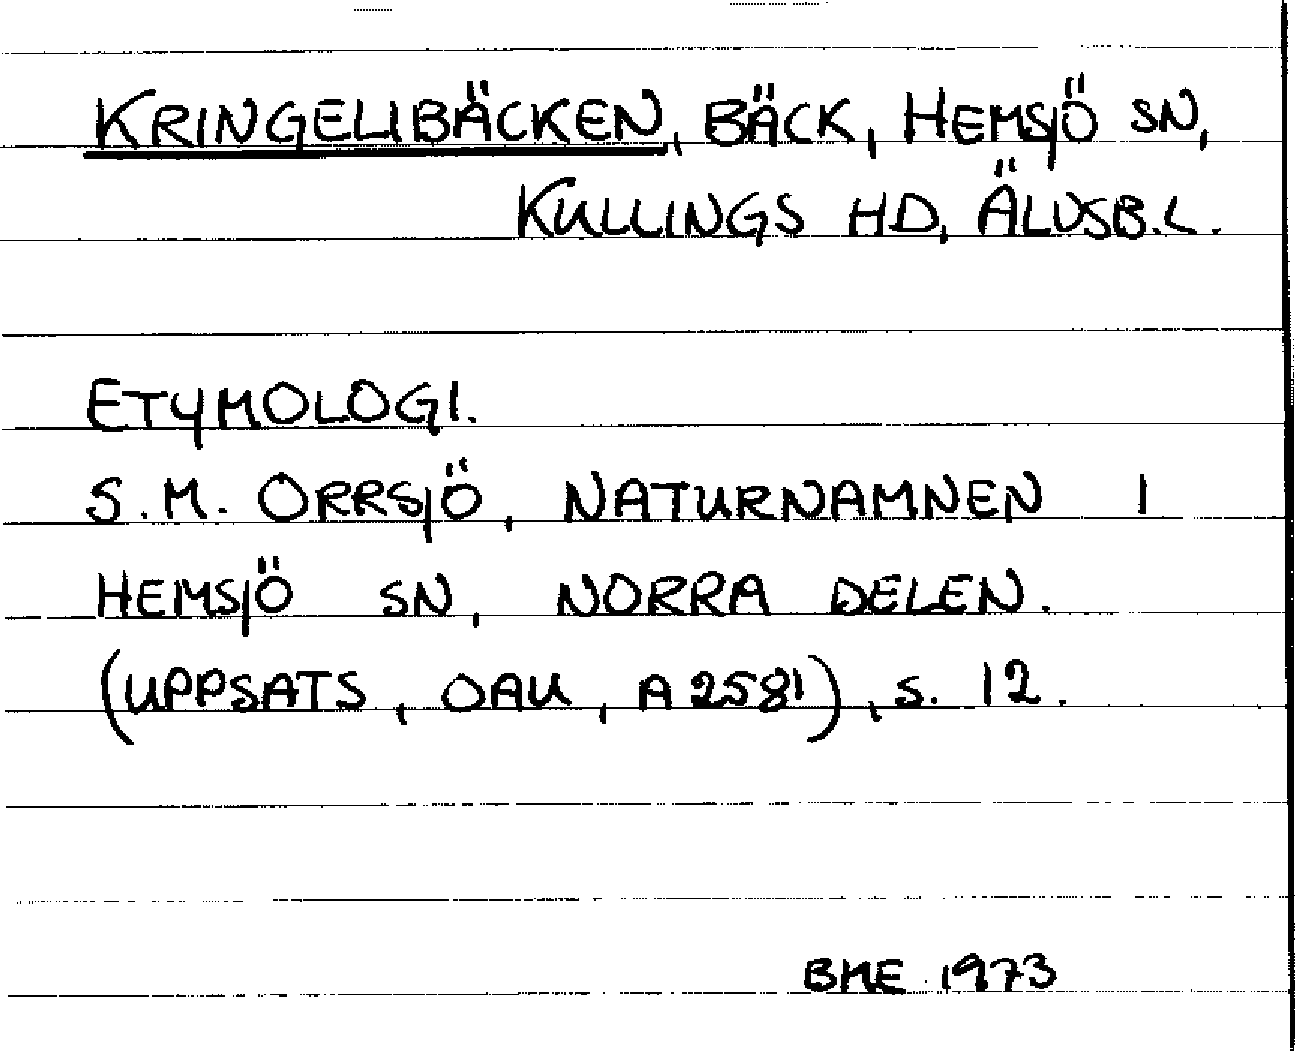 KRINGELIBÄCKEN, BÄCK, HEMSJÖ SN,
KULLINGS HD, ÄLVSB.L.
ETYMOLOGI.
S.M. ORRSJÖ, NATURNAMNEN I
HEMSJÖ SN, NORRA DELEN.
(UPPSATS, OAU, A 2581), s. 12.
BME 1973